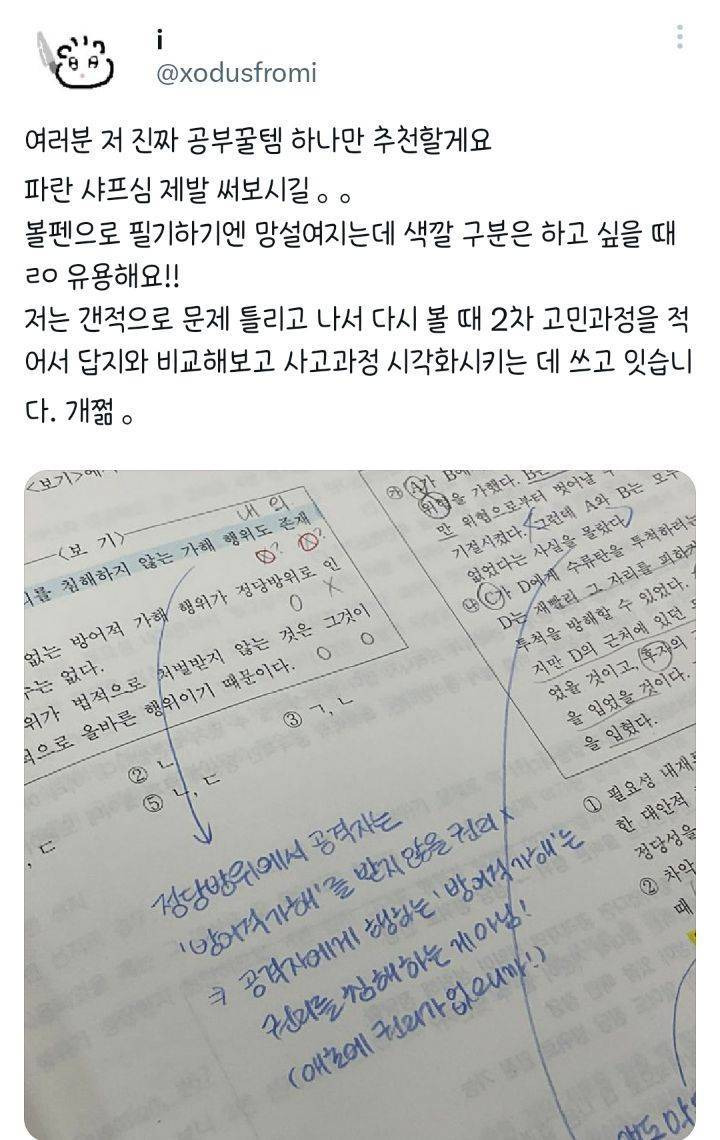 i
@xodusfromi
여러분 저 진짜 공부꿀템 하나만 추천할게요
파란 샤프심 제발 써보시길 。。
볼펜으로 필기하기엔 망설여지는데 색깔 구분은 하고 싶을 때
ㄹㅇ 유용해요!!
저는 갠적으로 문제 틀리고 나서 다시 볼 때 2차 고민과정을 적
어서 답지와 비교해보고 사고과정 시각화시키는 데 쓰고 잇습니
다. 개쩖 。
<보기>에
<보 기>
내 의
를 침해하지 않는 가해 행위도 존재
X? X?
없는 방어적 가해 행위가 정당방위로 인
O X
는 없다.
위가 법적으로 처벌받지 않는 것은 그것이
적으로 올바른 행위이기 때문이다.
O O
② ㄴ
③ ㄱ, ㄴ
⑤ ㄴ, ㄷ
, ㄷ
정당방위에서 공격자는
'방어적가해'를 받지 않을 권리 x
→ 공격자에게 행하는 '방어적 가해'는
권리를 침해하는 게 아님!
(애초에 권리가 없으니까!)
㉮ A가 B에
위협을 가했다. B는
만 위험으로부터 벗어날 수
기절시켰다. 그런데 A와 B는 모두
없었다는 사실을 몰랐다.
㉯ C가 D에게 수류탄을 투척하려는
D는 재빨리 그 자리를 피하
투척을 방해할 수 있었다.
지만 D의 근처에 있던
었을 것이고, 후자의
을 입었을 것이다.
을 입혔다.
① 필요성 내재
한 대안적
정당성을
② 차악
때